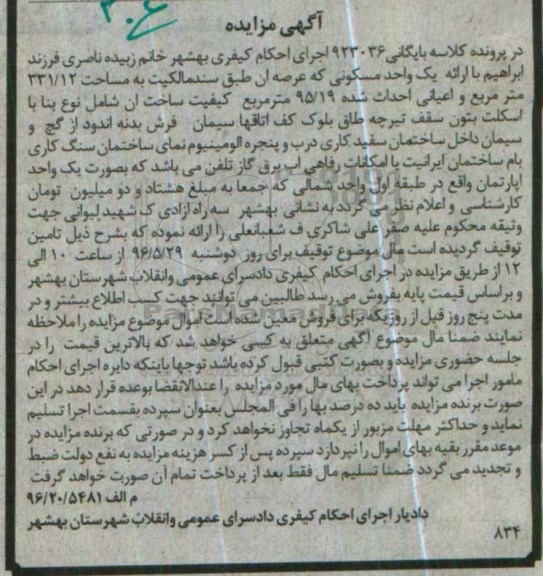 آگهی مزایده
در پرونده کلاسه بایگانی ۹۲۳۰۳۶ اجرای احکام کیفری بهشهر خانم زبیده ناصری فرزند
ابراهیم با ارائه یک واحد مسکونی که عرصه ان طبق سندمالکیت به مساحت ۳۳۱/۱۲
متر مربع و اعیانی احداث شده ۹۵/۱۹ مترمربع کیفیت ساخت ان شامل نوع بنا با
اسکلت بتون سقف تیرچه طاق بلوک کف اتاقها سیمان فرش بدنه اندود از گچ و
سیمان داخل ساختمان سفید کاری درب و پنجره الومینیوم نمای ساختمان سنگ کاری
بام ساختمان ایرانیت با امکانات رفاهی اب برق گاز تلفن می باشد که بصورت یک واحد
اپارتمان واقع در طبقه اول واحد شمالی که جمعا به مبلغ هشتاد و دو میلیون تومان
کارشناسی و اعلام نظر می گردد به نشانی بهشهر سه راه ازادی ک شهید لیوانی جهت
وثیقه محکوم علیه صفر علی شاکری ف شعبانعلی را ارائه نموده که بشرح ذیل تامین
توقیف گردیده است مال موضوع توقیف برای روز دوشنبه ۹۶/۵/۲۹ از ساعت ۱۰ الی
۱۲ از طریق مزایده در اجرای احکام کیفری دادسرای عمومی وانقلاب شهرستان بهشهر
و براساس قیمت پایه بفروش می رسد طالبین می توانید جهت کسب اطلاع بیشتر و در
مدت پنج روز قبل از روزیکه برای فروش معین شده است اموال موضوع مزایده را ملاحظه
نمایند ضمنا مال موضوع آگهی متعلق به کسی خواهد شد که بالاترین قیمت را در
جلسه حضوری مزایده و بصورت کتبی قبول کرده باشد توجها باینکه دایره اجرای احکام
مامور اجرا می تواند پرداخت بهای مال مورد مزایده را عندالانقضا بوعده قرار دهد در این
صورت برنده مزایده باید ده درصد بها را فی المجلس بعنوان سپرده بقسمت اجرا تسلیم
نماید و حداکثر مهلت مزبور از یکماه تجاوز نخواهد کرد و در صورتی که برنده مزایده در
موعد مقرر بقیه بهای اموال را نپردازد سپرده پس از کسر هزینه مزایده به نفع دولت ضبط
و تجدید می گردد ضمنا تسلیم مال فقط بعد از پرداخت تمام آن صورت خواهد گرفت
م الف ۹۶/۲۰/۵۴۸۱
دادیار اجرای احکام کیفری دادسرای عمومی وانقلاب شهرستان بهشهر
۸۳۴